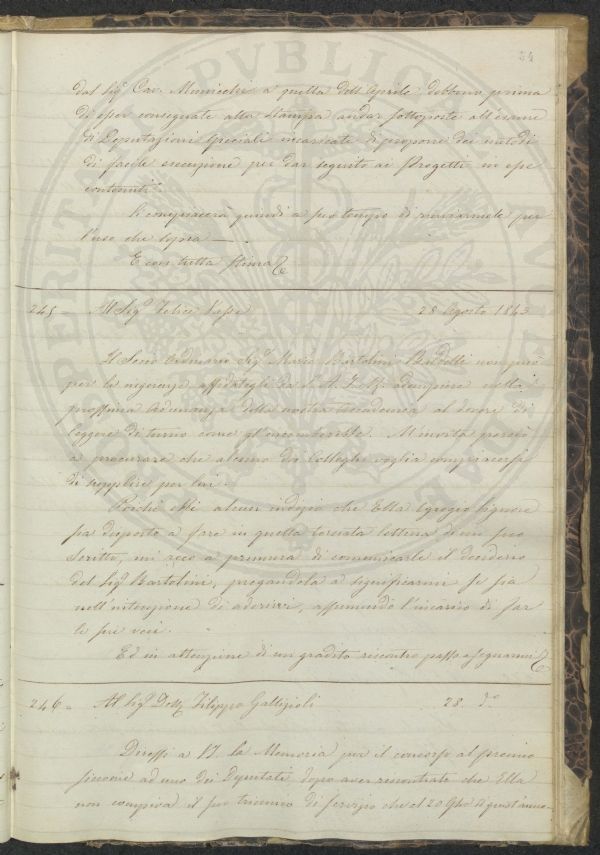 34
dal Sig.r Cav. Menicchi a quella dell'Aprile debbono prima
di esser consegnate alla stampa andar sottoposte all'esame
di Deputazioni Speciali incaricate di proporre dei metodi
di facile esecuzione per dar seguito ai Progetti in esse
contenuti.
Si compiacerà quindi a suo tempo di rinviarmele per
l'uso che sopra —
E con tutta stima
245 = Al Sig.r Felice Vasse 28 Agosto 1843
Il Socio Ordinario Sig.r Marco Bartolini Baldelli non può
per la affidatagli da S. A. I. e R. adempiere nella
prossima Adunanza della nostra Accademia al dovere di
leggere di turno come gl'incomberebbe. M'invita perciò
a procurare che alcuno dei Colleghi voglia compiacersi
di supplire per lui.
Poichè ebbi alcun indizio che Ella Egregio Signore
sia disposto a fare in quella tornata lettura di un suo
Scritto, mi reco a premura di comunicarle il desiderio
del Sig.r Bartolini, pregandola a significarmi se sia
nell'intenzione di aderirvi, assumendo l'incarico di far
le sue veci.
Ed in attenzione di un gradito riscontro passo a segnarmi
246 = Al Sig.r Dott. Filippo Gallizioli 28. d.o
Diressi a V.S. la Memoria per il concorso al premio
siccome ad uno dei Deputati dopo aver riscontrato che Ella
non compiva il suo triennio di servizio che il 20 9bre di quest'anno.